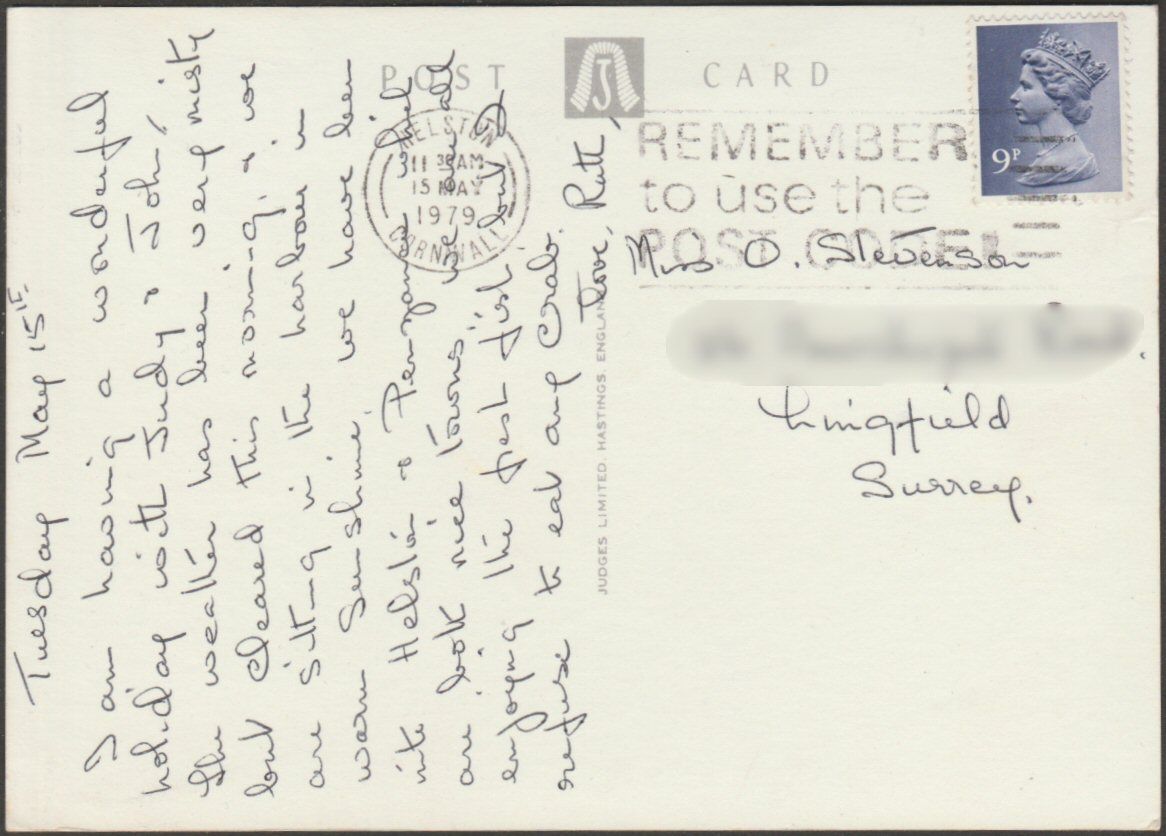 Tuesday May 15th
I am having a wonderful
holiday with Judy & John,
The weather has been very misty
but cleared this morning, & we
are sitting in the harbour in
warm sunshine. We have been
into Helston & Penzance
are both nice towns, we are all
enjoying the fresh fish but I
refuse to eat any Crab.
Love, Ruth,
POST CARD
HELSTON
11 30 AM
15 MAY
1979
CORNWALL
REMEMBER
to use the
POST CODE
9P
Miss O. Stevenson
Lingfield
Surrey.
JUDGES LIMITED, HASTINGS, ENGLAND